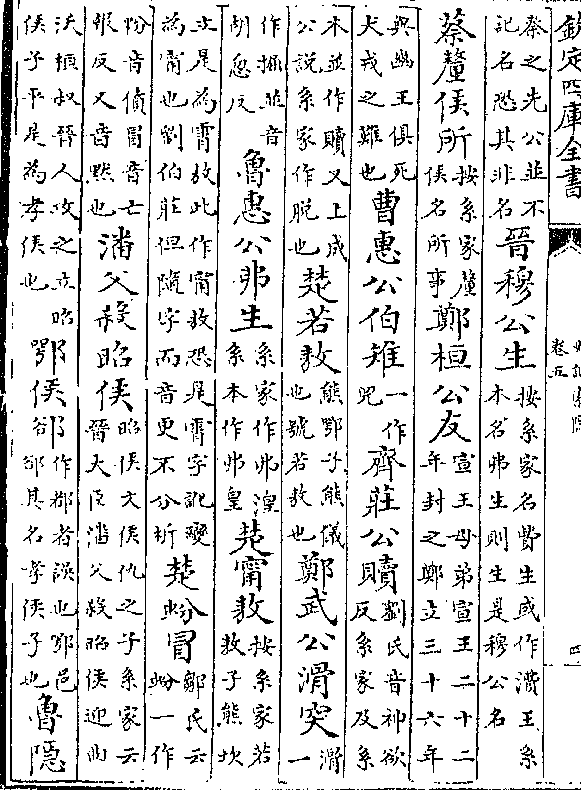 欽定四庫全書
史記索隱
卷五
四
秦之先公並不
記名恐其非名
晉穆公生
按系家名費生或作㵒王系
本名弗生則生是穆公名
蔡釐侯所
按系家釐
侯名所事
鄭桓公友
宣王母弟宣王二十二
年封之鄭立三十六年
與幽王俱死
犬戎之難也
曹惠公伯雉
一作
兕
齊莊公贖
劉氏音神欲
反系家及系
本並作贖又上成
公説系家作脱也
楚若敖
熊鄂子熊儀
也號若敖也
鄭武公滑突
滑
一
作掘並音
胡忽反
魯惠公弗生
系家作弗湟
系本作弗皇
楚甯敖
按系家若
敖子熊坎
立是為霄敖此作甯敖恐是霄字訛變
為甯也劉伯莊但隨字而音更不分析
楚蚡冒
鄒氏云
蚡一作
㤋音僨冒音亡
報反又音黙也
潘父殺昭侯
昭侯文侯仇之子系家云
晉大臣潘父殺昭侯迎曲
沃桓叔晉人攻之立昭
侯子平是為孝侯也
鄂侯
作都者誤也鄂邑
其名孝侯子也
魯隠